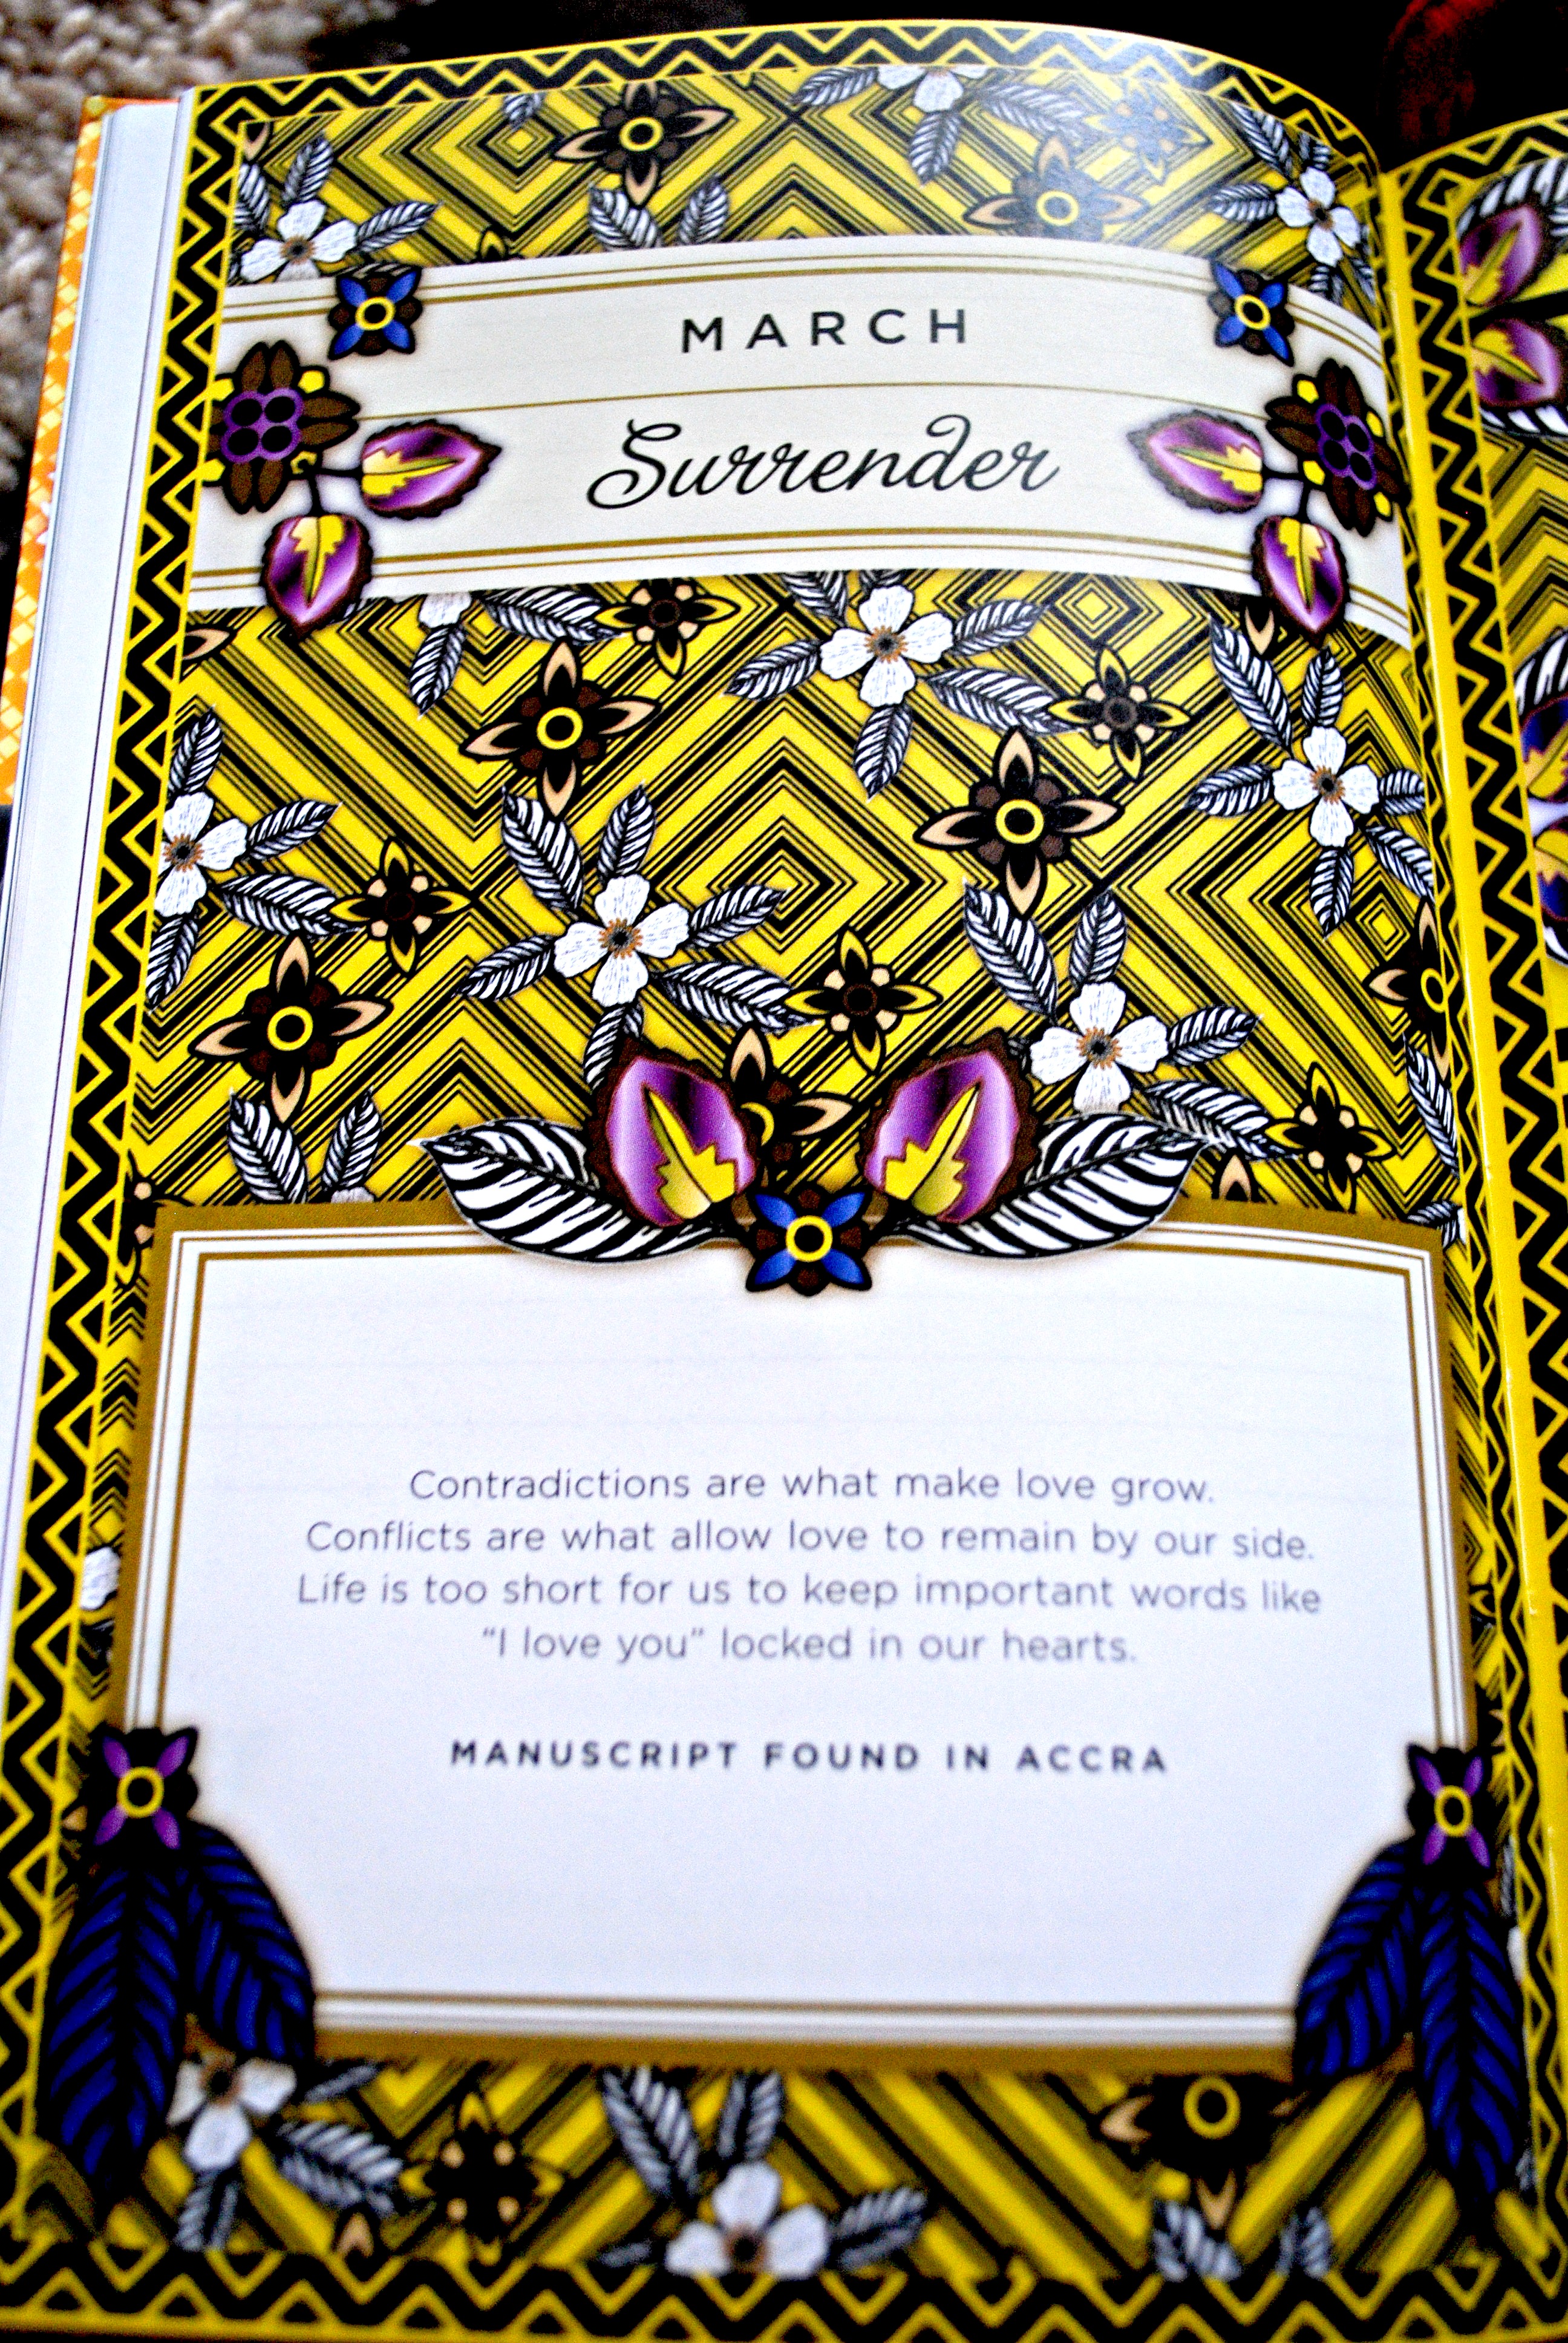 MARCH
Surrender
Contradictions are what make love grow.
Conflicts are what allow love to remain by our side.
Life is too short for us to keep important words like
“I love you” locked in our hearts.
MANUSCRIPT FOUND IN ACCRA